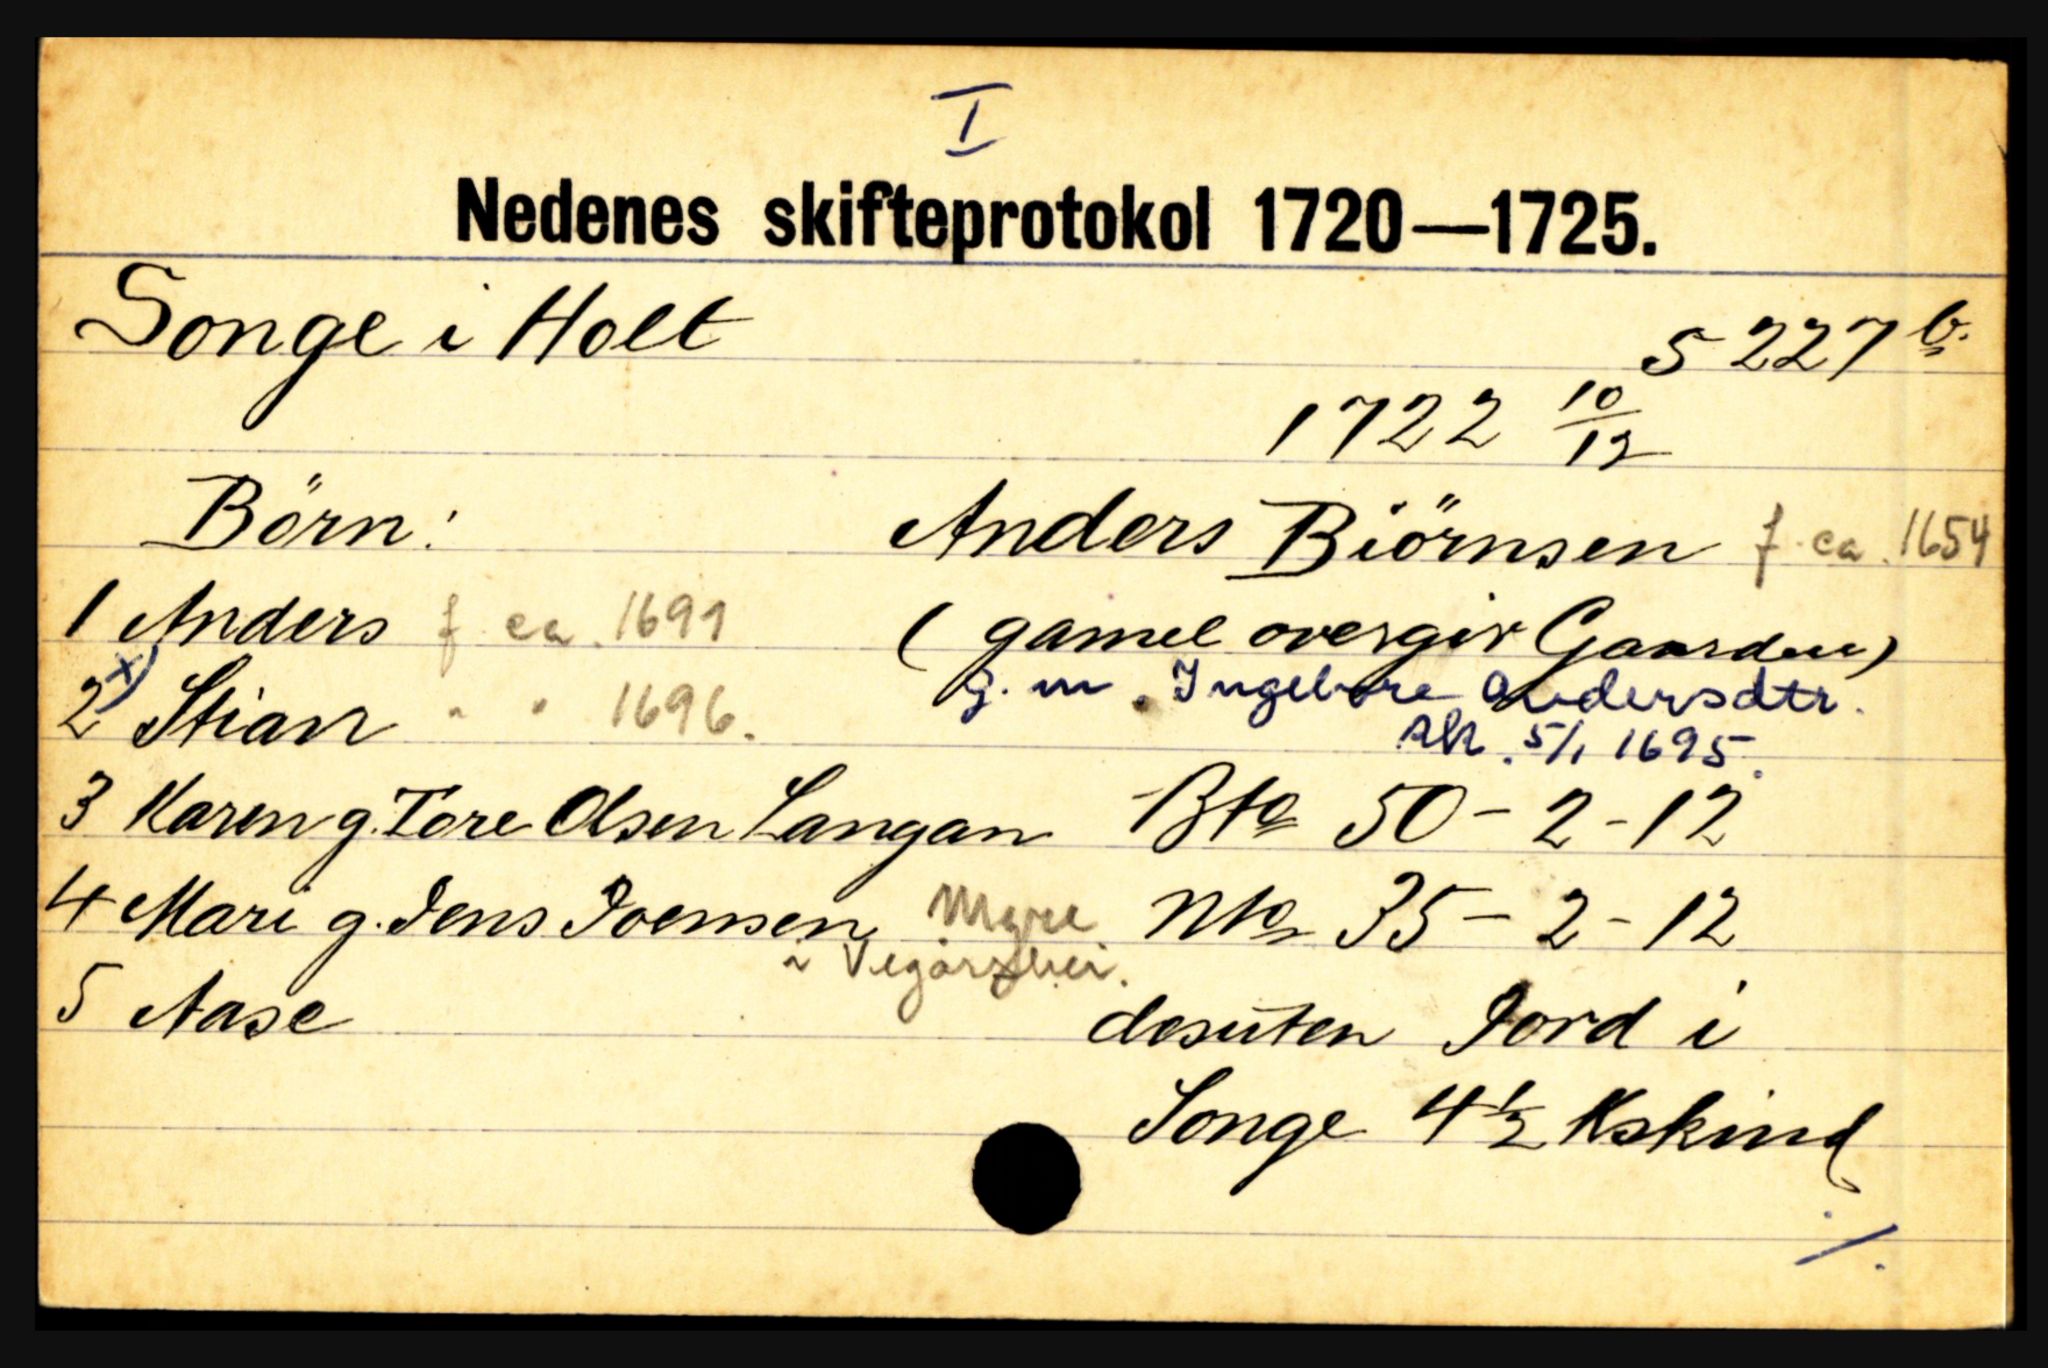 I
Nedenes skifteprotokol 1720—1725.
Songe i Holt
S 227 b.
1722 10/12
Börn:
Anders Biörnsen f. ca. 1654
1 Anders f ca. 1691
( gamel overgir Gaarden)
2 x) Stian " " 1696.
g. m. Ingebore Andersdtr.
5/1 1695.
3 Karen g. Tore Olsen Langan
Bto 50 - 2 - 12
4 Mari g. Jens Joensen Myre
Nto 35 - 2 - 12
i Vegårshei.
5 Aase
desuten Jord i
Songe 4½ Kskind
./.